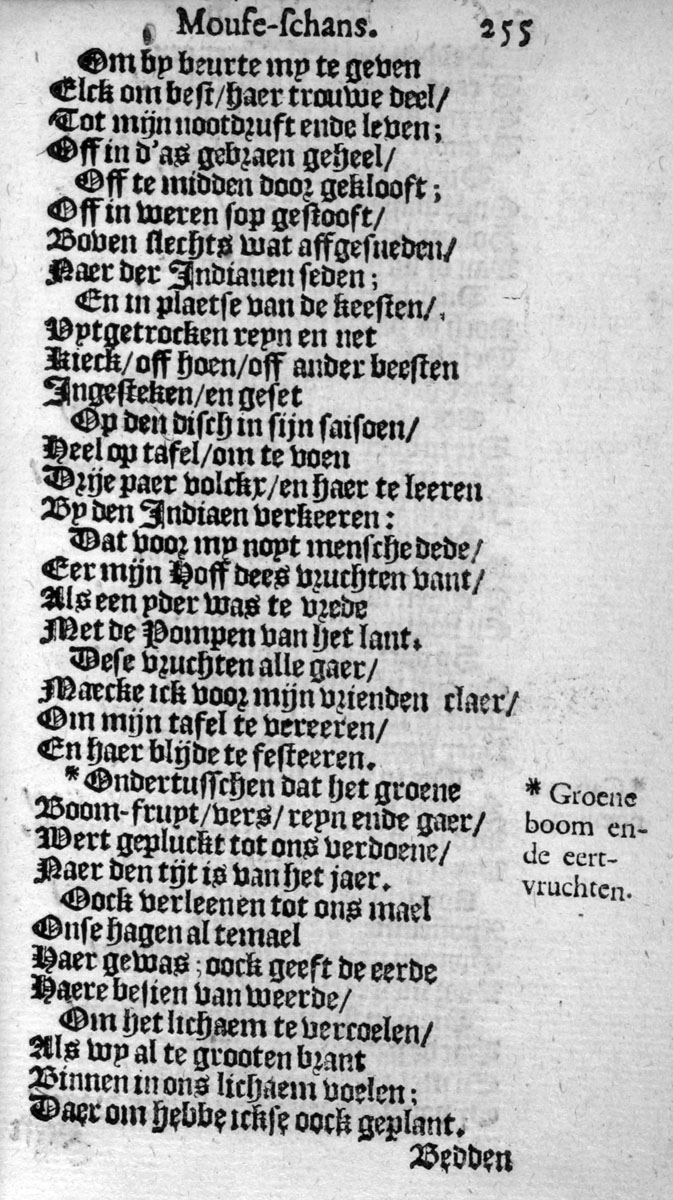 Mouse-schans. 255
Om by beurte my te geven
Elck om best/haer trouwe deel/
Tot mijn nootdruft ende leven;
Off in d'as gebraen geheel/
Off te midden door geklooft;
Off in weren sop gestooft/
Boven slechts wat affgesneden/
Naer der Indianen seden;
En in plaetse van de keesten/
Uytgetrocken reyn en net
Kieck/off hoen/off ander beesten
Ingesteken/en geset
Op den disch in sijn saisoen/
Heel op tafel/om te voen
Drije paer volckx/en haer te leeren
By den Indiaen verkeeren:
Dat voor my noyt mensche dede/
Eer mijn Hoff dees vruchten vant/
Als een yder was te vrede
Met de Pompen van het lant.
Dese vruchten alle gaer/
Maecke ick voor mijn vrienden claer/
Om mijn tafel te vereeren/
En haer blijde te festeeren.
* Ondertusschen dat het groene
Boom-fruyt/vers/reyn ende gaer/
Wert gepluckt tot ons verdoene/
Naer den tijt is van het jaer.
Oock verleenen tot ons mael
Onse hagen al temael
Haer gewas; oock geeft de eerde
Haere besien van weerde/
Om het lichaem te vercoelen/
Als wy al te grooten brant
Binnen in ons lichaem voelen;
Daer om hebbe ickse oock geplant.
Bedden
* Groene
boom en-
de eert-
vruchten.